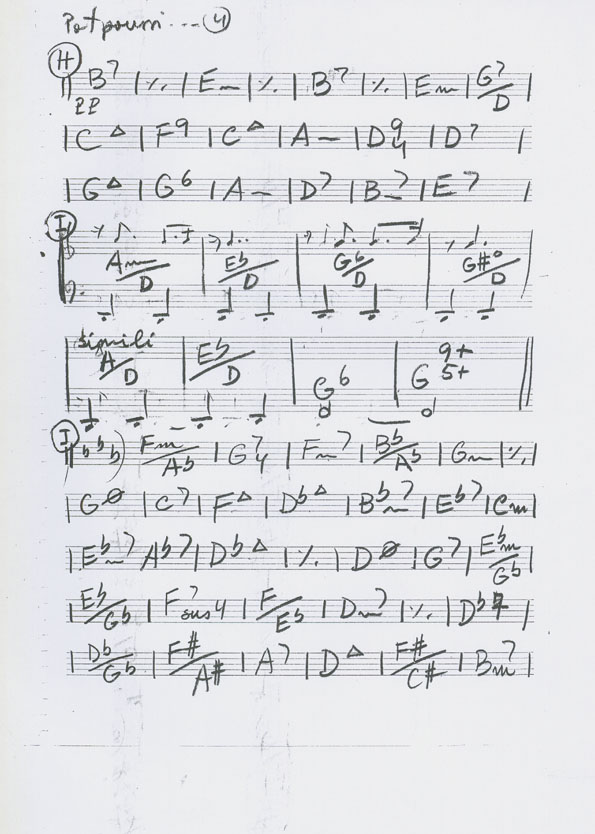 Potpourri... 4
H
B7 | ٪ | Em | ٪ | B7 | ٪ | Em | G7/D
pp
| C△ | F9 | C△ | A– | D9 4 | D7 |
| G△ | G6 | A– | D7 | B–7 | E7 |
I
Am/D | Eb/D | Gb/D | G#°/D
simili
A/D | Eb/D | G6 | G 9+ 5+
I
(bbb) Fm/Ab | G7 4 | Fm7 | Bb/Ab | Gm | ٪ |
| Gø | C7 | F△ | Db△ | Bbm7 | Eb7 | Cm |
| Ebm7 Ab7 | Db△ | ٪ | Dø | G7 | Ebm/Gb |
| Eb/Gb | F7 sus4 | F/Eb | Dm7 | ٪ | Db7 |
| Db/Gb | F#/A# | A7 | D△ | F#/C# | Bm7 |